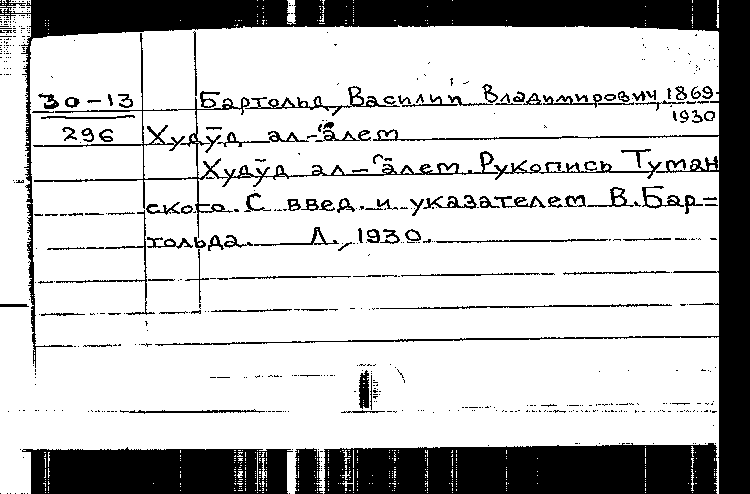 30-13 Бартольд, Василий Владимирович, 1869-
1930
296 Худӯд ал-ʿāлем
Худӯд ал-ʿāлем. Рукопись Туман
ского. С введ. и указателем В. Бар-
тольда. Л., 1930.